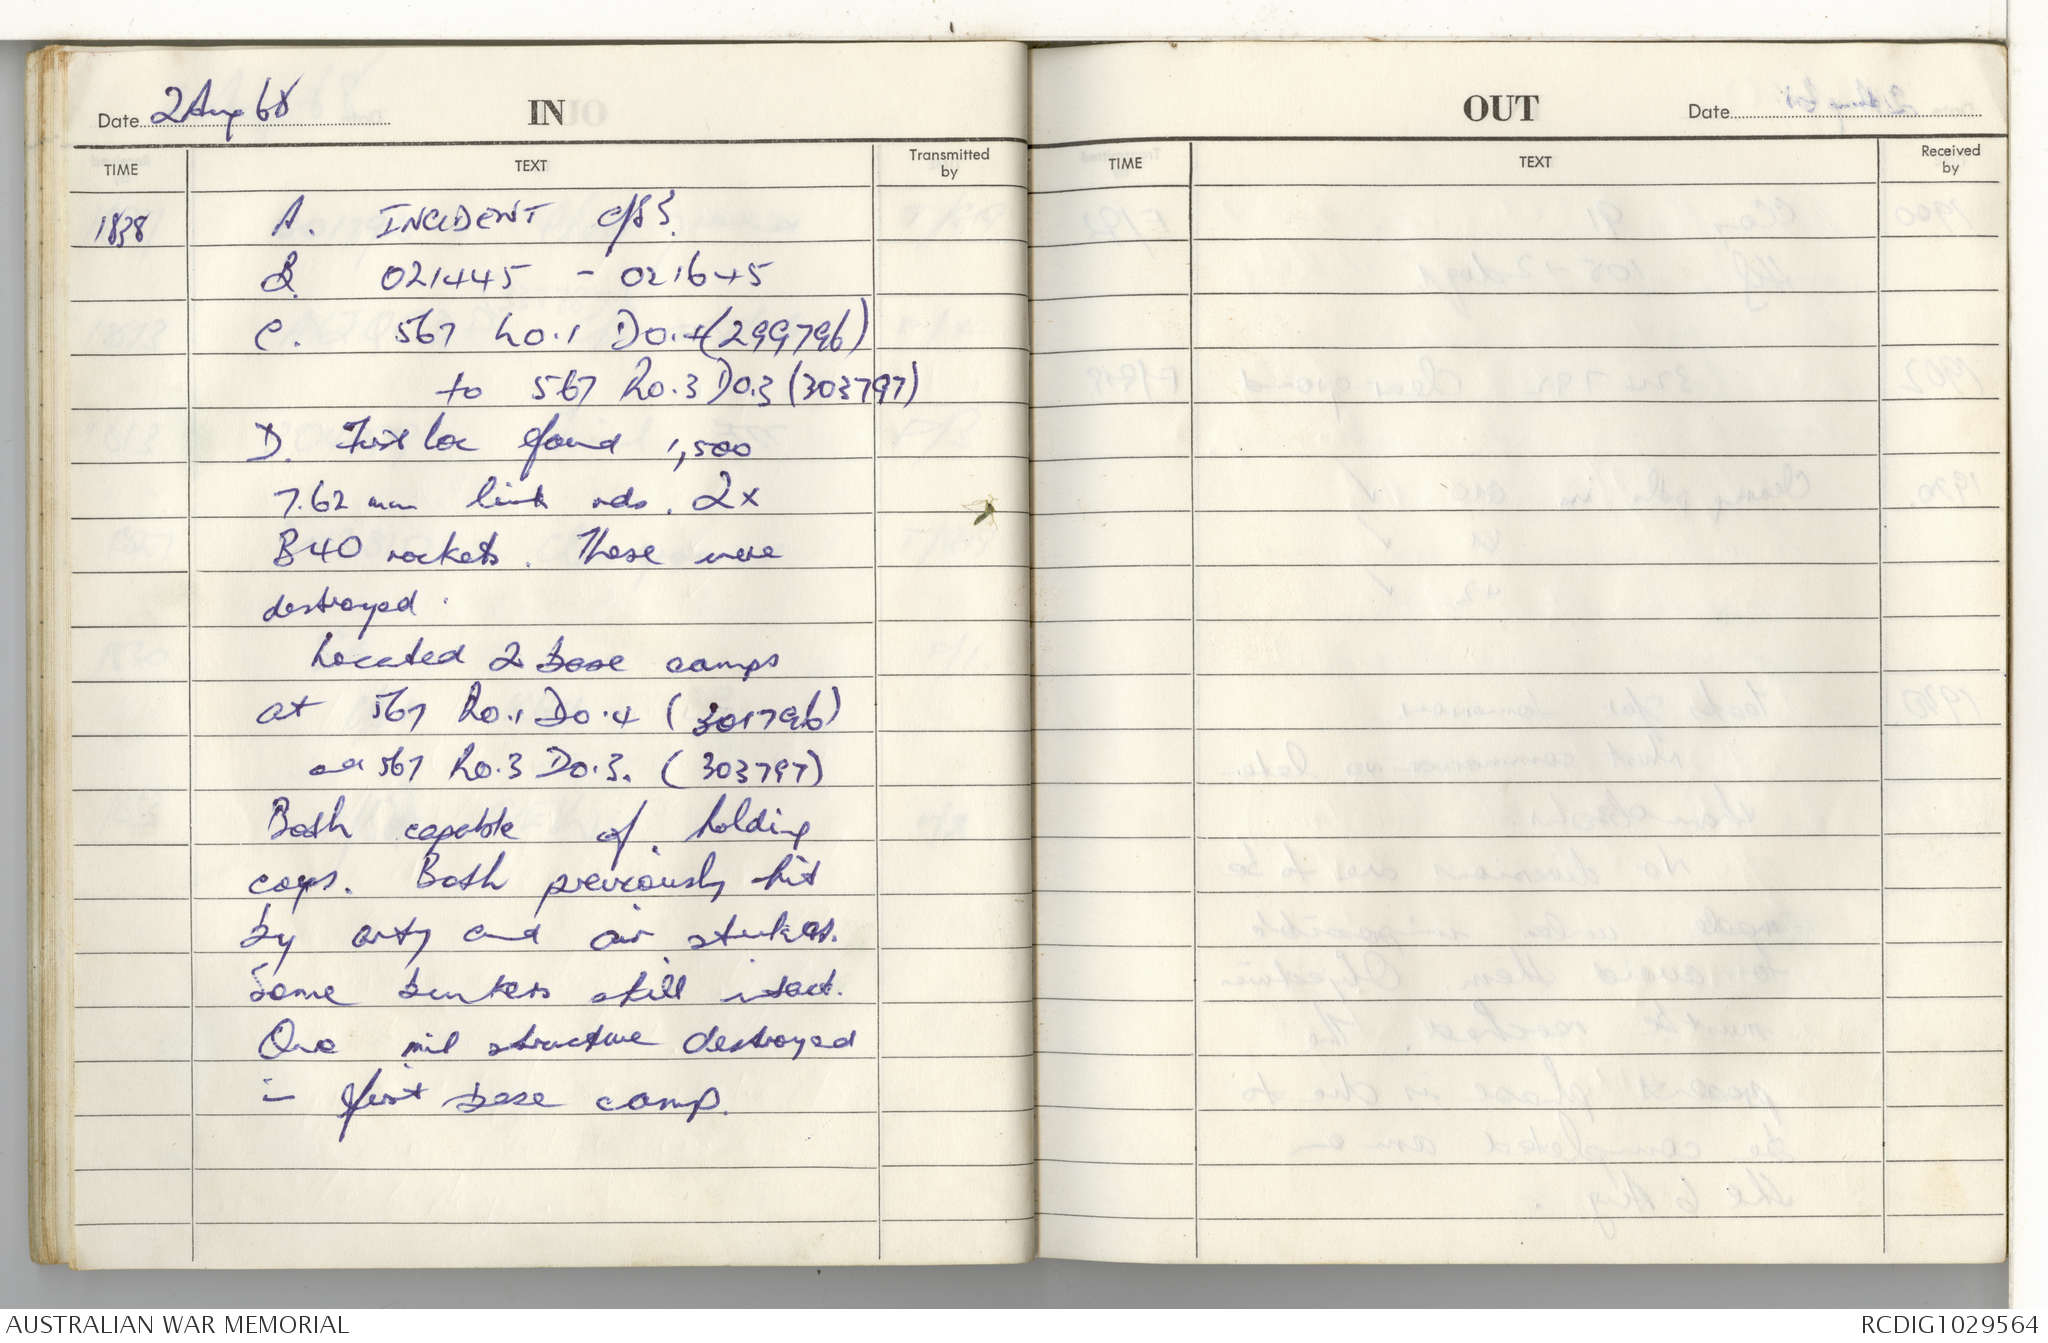 Date 2 Aug 68
IN
TIME
TEXT
Transmitted by
1838
A. INCIDENT c/s 3.
B. 021445 - 021645
C. 567 Ro.1 Do.4 (299796)
to 567 Ro.3 Do.3 (303797)
D. First loc found 1,500
7.62 mm link rds. 2x
B40 rockets. These were
destroyed.
Located 2 base camps
at 567 Ro.1 Do.4 (301796)
and 567 Ro.3 Do.3. (303797)
Both capable of holding
coys. Both previously hit
by arty and air strikes.
Some bunkers still intact.
One mil structure destroyed
in first base camp.
OUT
Date
TIME
TEXT
Received by
AUSTRALIAN WAR MEMORIAL
RCDIG1029564